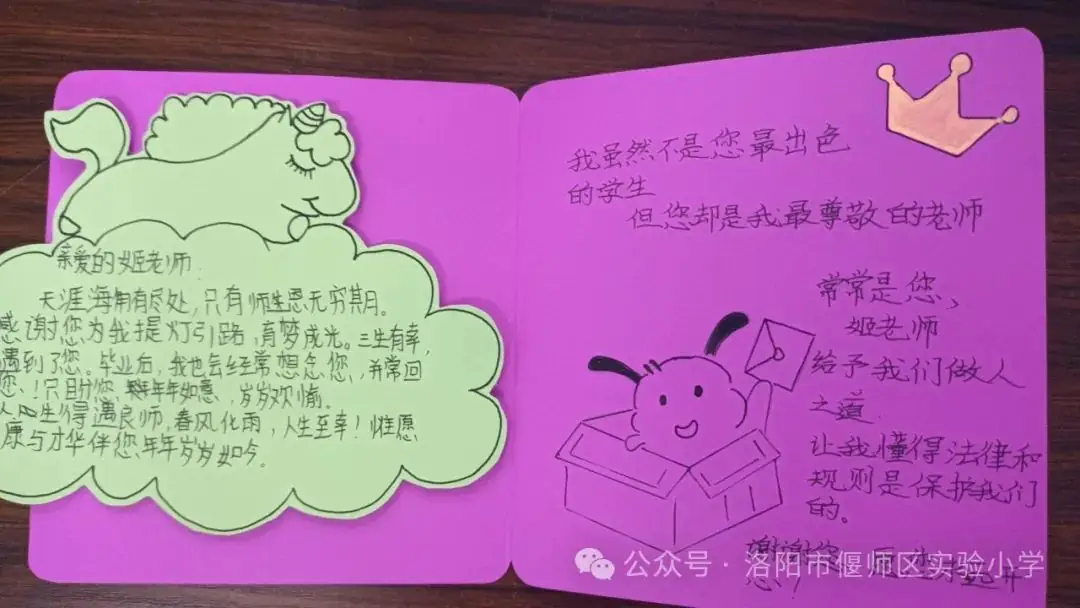 亲爱的姬老师
天涯海角有尽处,只有师生恩无穷期。
感谢您为我提灯引路,育梦成光。三生有幸,
遇到了您。毕业后,我也会经常想念您,并常回
您!只助您, 年年如意,岁岁欢愉
人生得遇良师,春风化雨,人生至幸!惟愿
康与才华伴您年年岁岁如今。
我虽然不是您最出色
的学生
但您却是我最尊敬的老师
常常是您,
姬老师
给予我们做人
之道
让我懂得法律和
规则是保护我们
的。
谢谢您
公众号·洛阳市偃师区实验小学